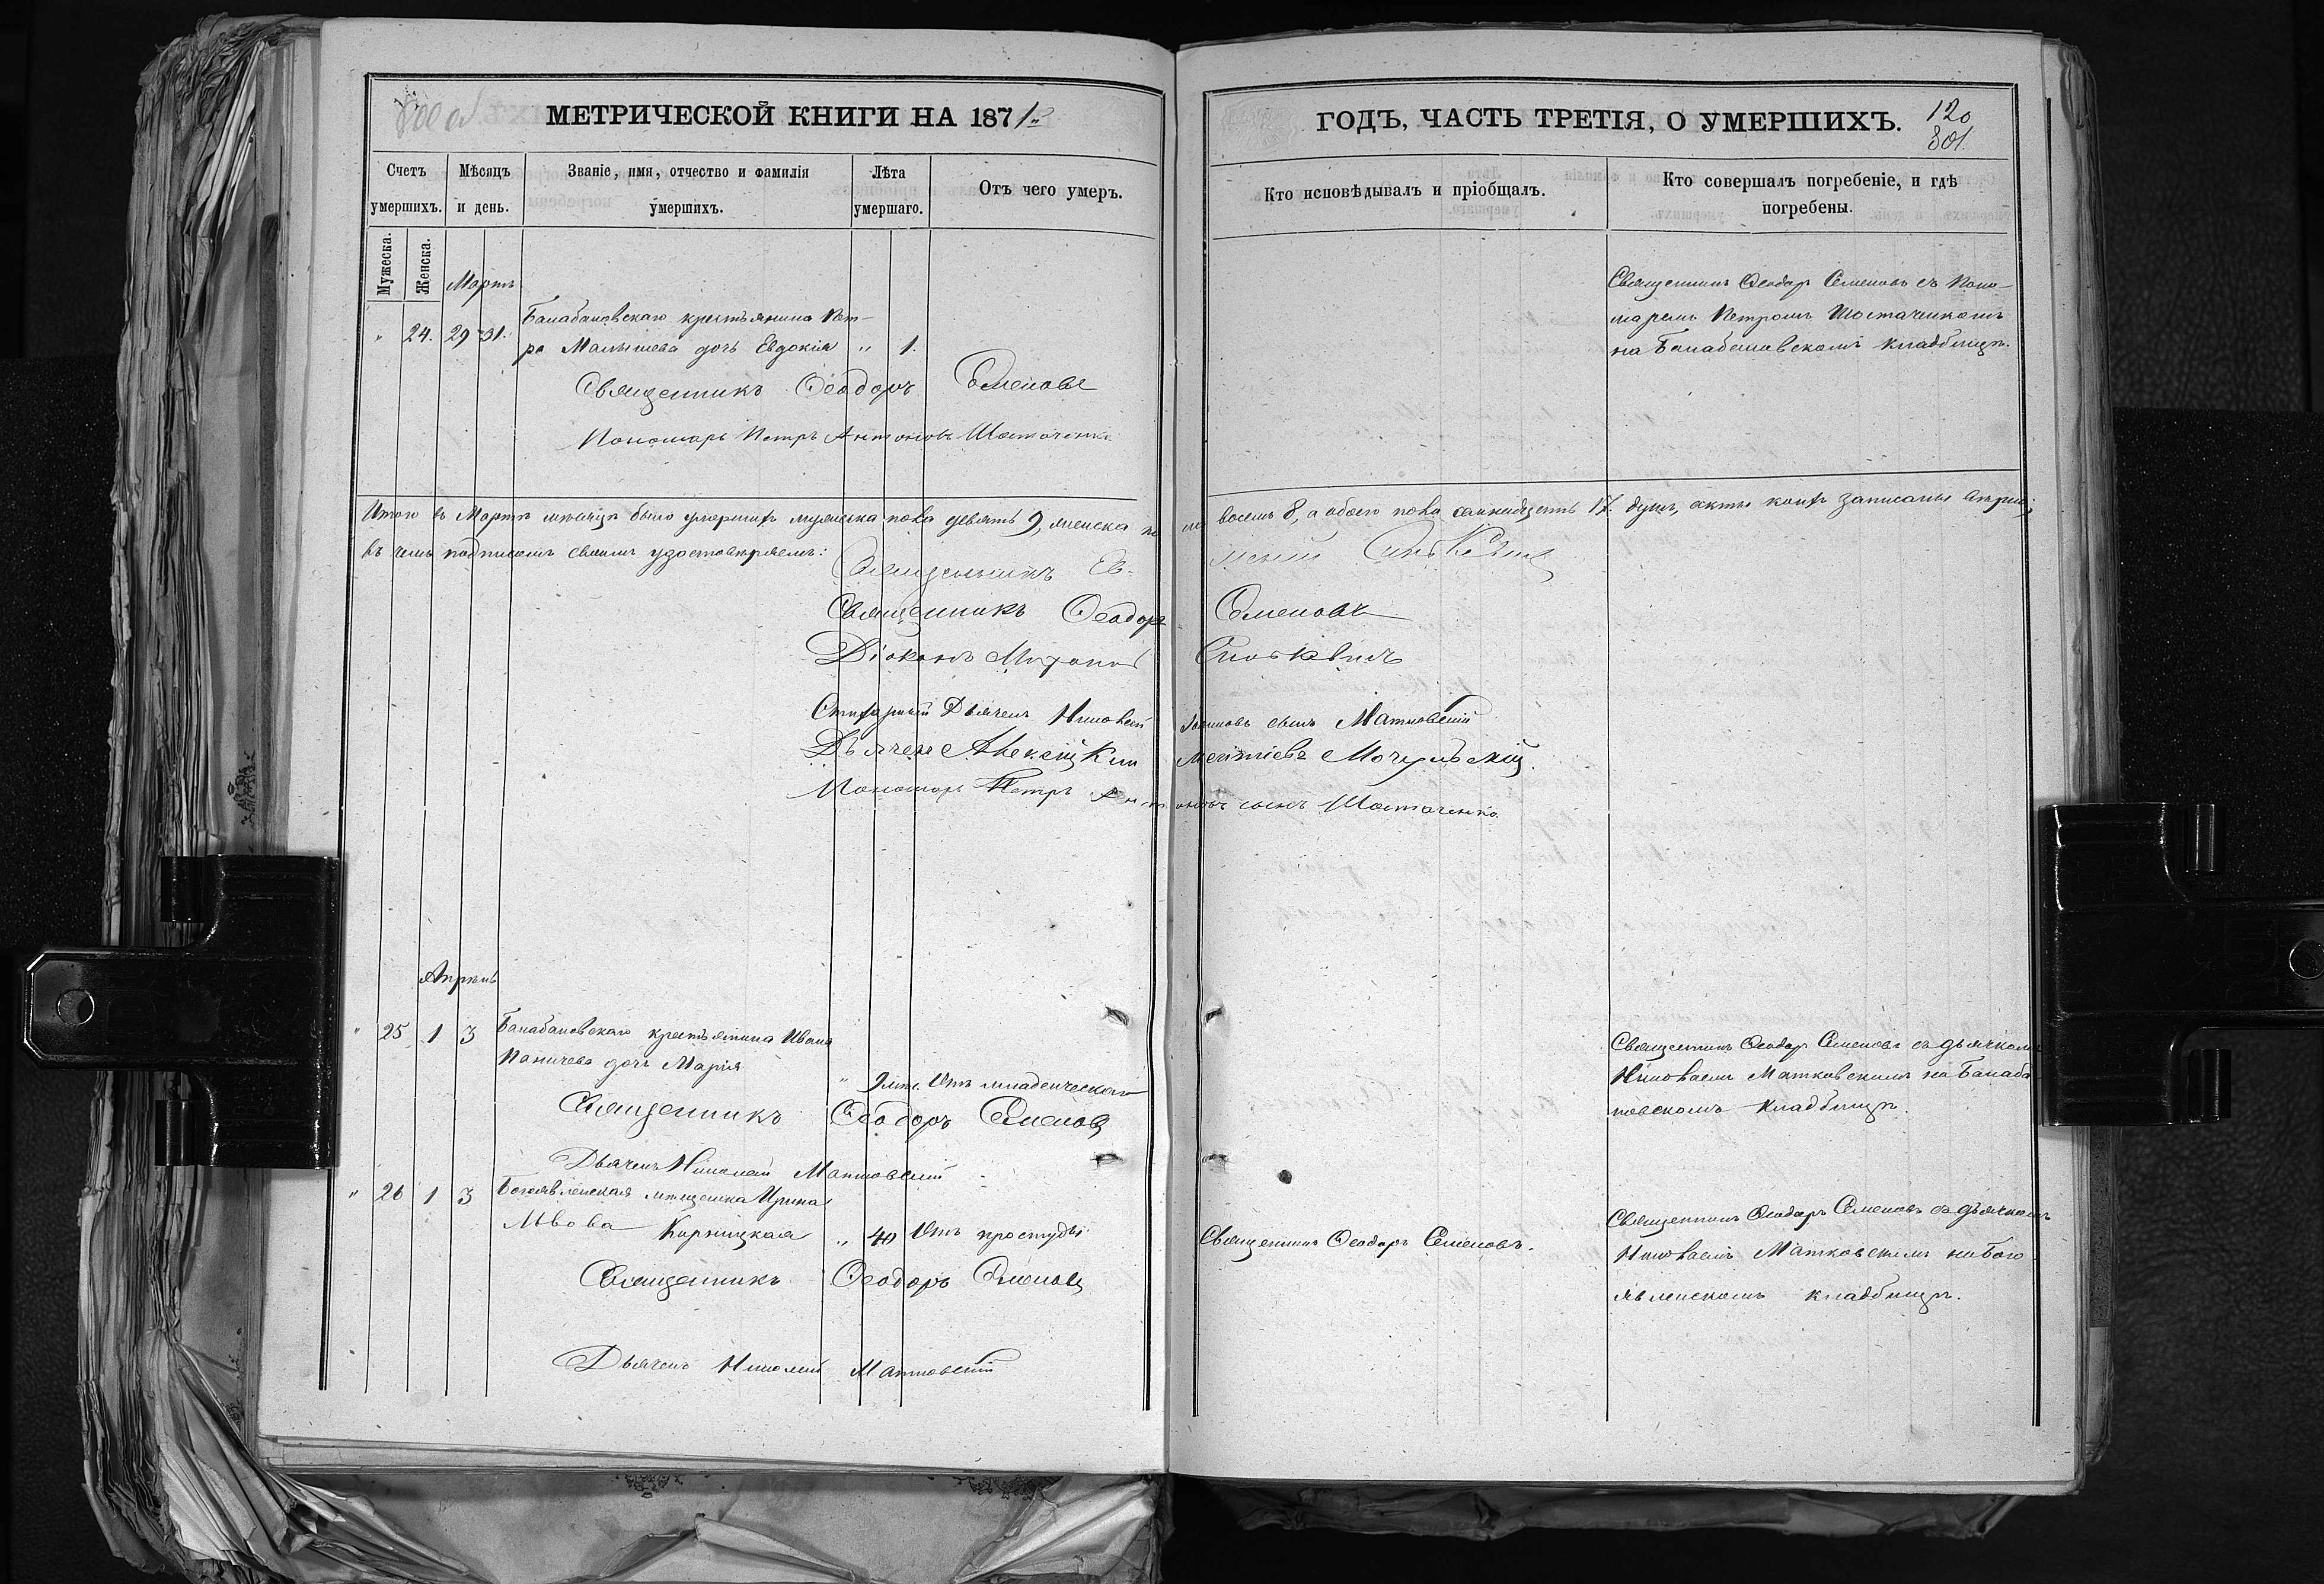 МЕТРИЧЕСКОЙ КНИГИ НА 1871
Счетъ умершихъ.
Мѣсяцъ и день.
Званіе, имя, отчество и фамилія умершихъ.
Лѣта умершаго.
Отъ чего умеръ.
Мужеска.
Женска.
Мартъ
" 24. 29 31. Балабановскаго крестьянина Пет-
ра Малышева дочь Евдокія " 1.
Священникъ Ѳеодоръ Семеновъ
Пономарь Петръ Антоновъ Шостаченко
Итого въ Мартѣ мѣсяцѣ было умершихъ мужеска пола девять 9, женска по
въ чемъ подписомъ своимъ удостовѣряемъ:
Священникъ Ев-
Священникъ Ѳеодоръ
Діаконъ
Стихарный Дьячекъ Николай
Дьячекъ Алексій Кли
Пономарь Петръ Ант
Апрѣль
" 25 1 3 Балабановскаго крестьянина Ивана
дочь Марія
" 9 мѣс. Отъ младенческой
Священникъ Ѳеодоръ Семеновъ
Дьячекъ Николай Матковскій
" 26 1 3 Богоявленская мѣщанка Ирина
Львова " 40 Отъ простуды
Священникъ Ѳеодоръ Семеновъ
Дьячекъ Николай Матковскій
ГОДЪ, ЧАСТЬ ТРЕТІЯ, О УМЕРШИХЪ.
120
801
Кто исповѣдывалъ и пріобщалъ.
Кто совершалъ погребеніе, и гдѣ погребены.
Священникъ Ѳеодоръ Семеновъ съ Поно-
маремъ Петромъ Шостаченкомъ
на Балабановскомъ кладбищѣ.
ла восемь 8, а обоего пола семнадцать 17. душъ, акты коихъ записаны
Семеновъ
Синькевичъ
сынъ Матковскій
ментіевъ Мочульскій.
оновъ сынъ Шостаченко.
Священникъ Ѳеодоръ Семеновъ съ дьячкомъ
Николаемъ Матковскимъ на Балаба
новскомъ кладбищѣ.
Священникъ Ѳеодоръ Семеновъ.
Священникъ Ѳеодоръ Семеновъ съ дьячкомъ
Николаемъ Матковскимъ на Бого
явленскомъ кладбищѣ.